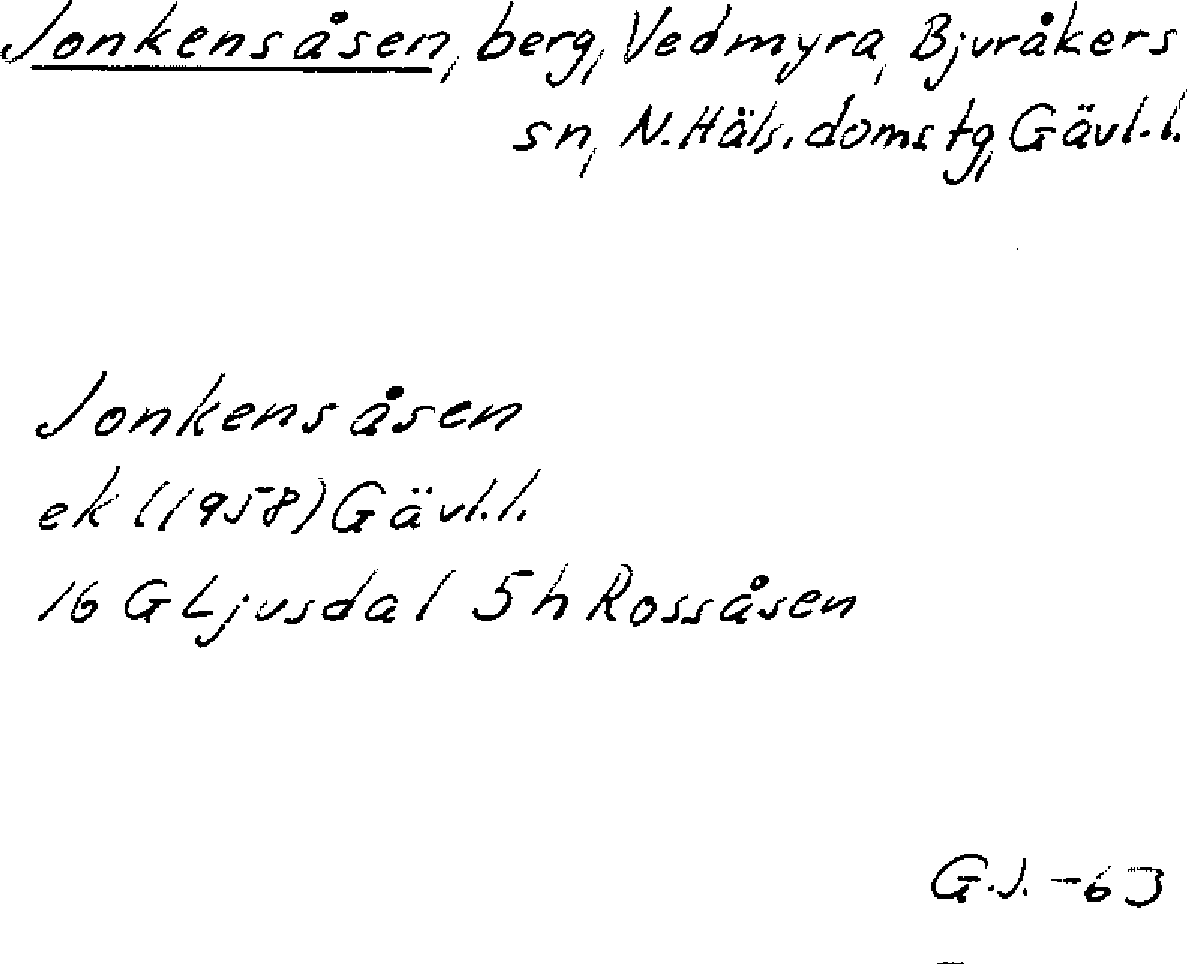 Jonkensåsen, berg, Vedmyra, Bjuråkers
sn, N. Häls. domstg, Gävl. l.
Jonkensåsen
ek (1958) Gävl. l.
16 G Ljusdal 5h Rossåsen
G.J. -63